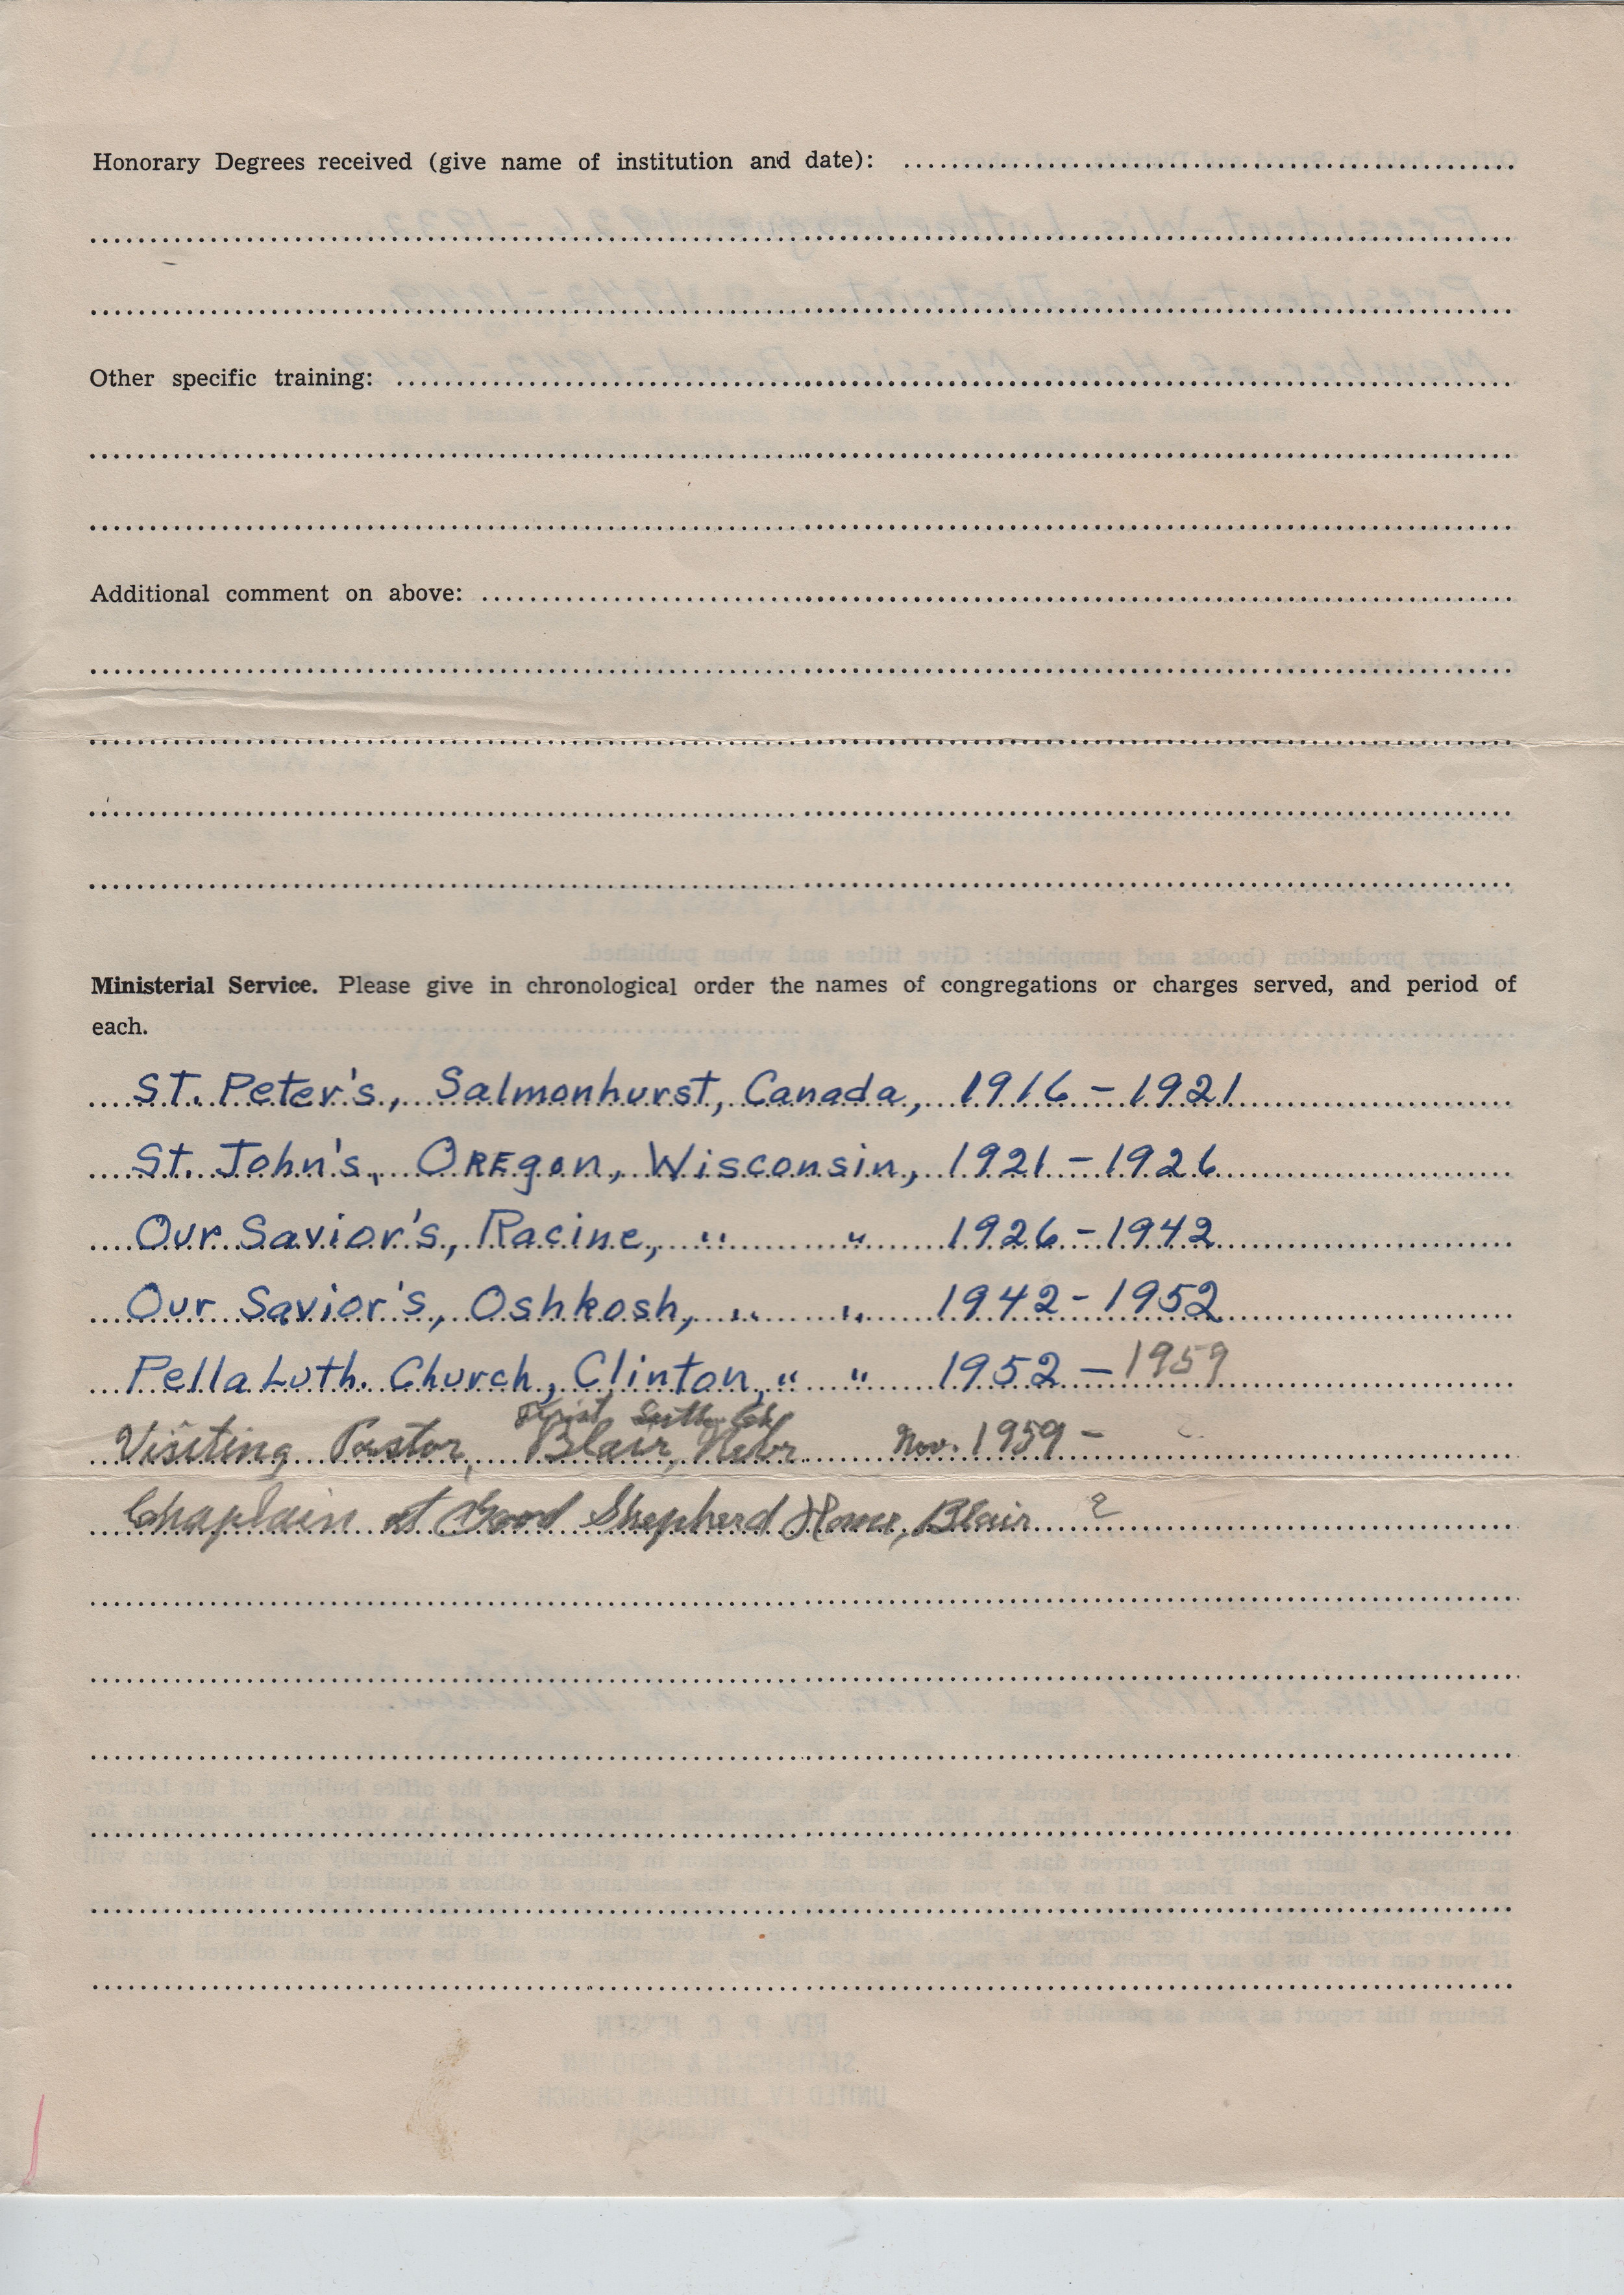 Honorary Degrees received (give name of institution and date):
Other specific training:
Additional comment on above:
Ministerial Service. Please give in chronological order the names of congregations or charges served, and period of
each.
ST. Peter's, Salmonhurst, Canada, 1916 - 1921
St. John's, OREgon, Wisconsin, 1921 - 1926
Our Savior's, Racine, " " 1926 - 1942
Our Savior's, Oshkosh, " " 1942 - 1952
Pella Luth. Church, Clinton, " " 1952 - 1959
First Luth. Ch.
Visiting Pastor, Blair, Nebr Nov. 1959 -
Chaplain at Good Shepherd Home, Blair ?